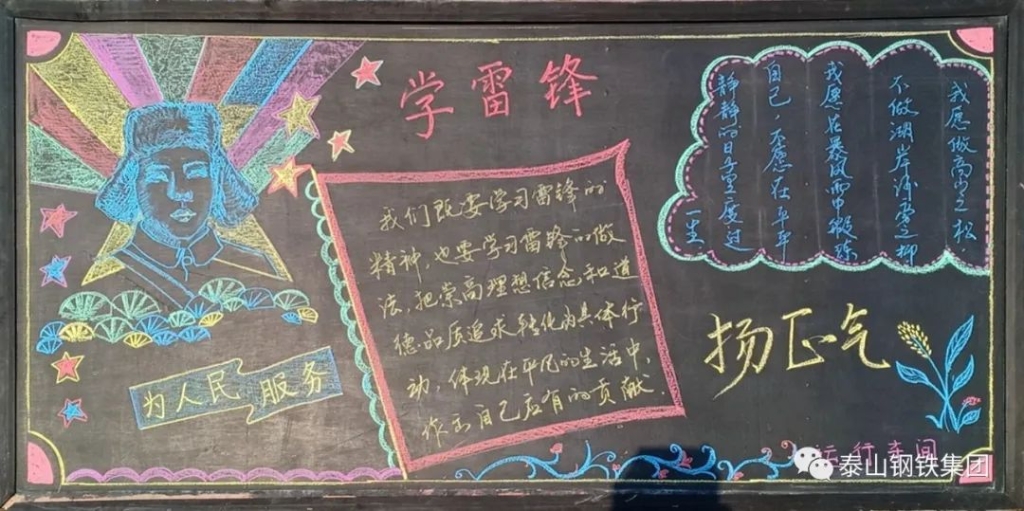 学雷锋
我们既要学习雷锋的
精神,也要学习雷锋的做
法,把崇高理想信念和道
德品质追求转化为具体行
动,体现在平凡的生活中,
作出自己应有的贡献.
为人民服务
我愿做高 之松
不做湖岸 之柳
我愿在暴风雨中锻炼
自己,不愿在平平
静静的日子里度过
一生
扬正气
运行车间
泰山钢铁集团